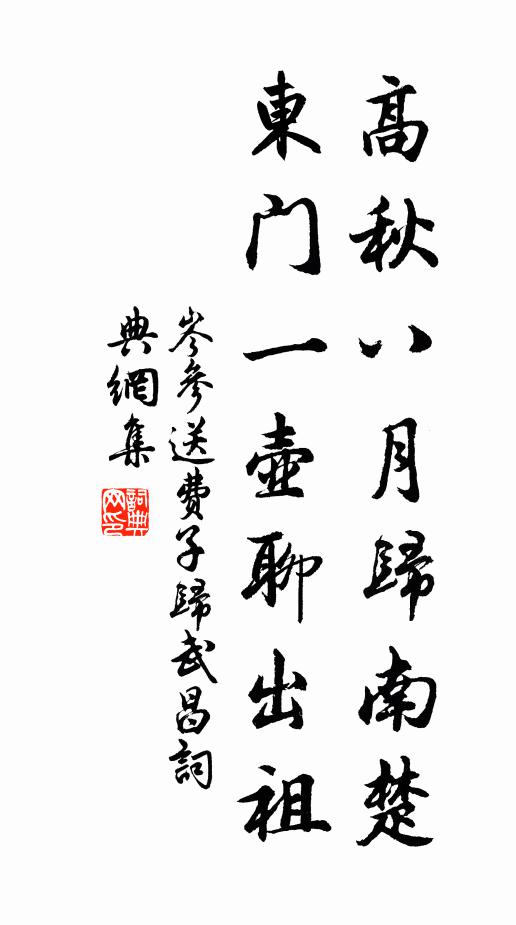 高秋八月歸南楚
東門一壺聊出祖
岑參送費子歸武昌詞
典網集
詞典網印